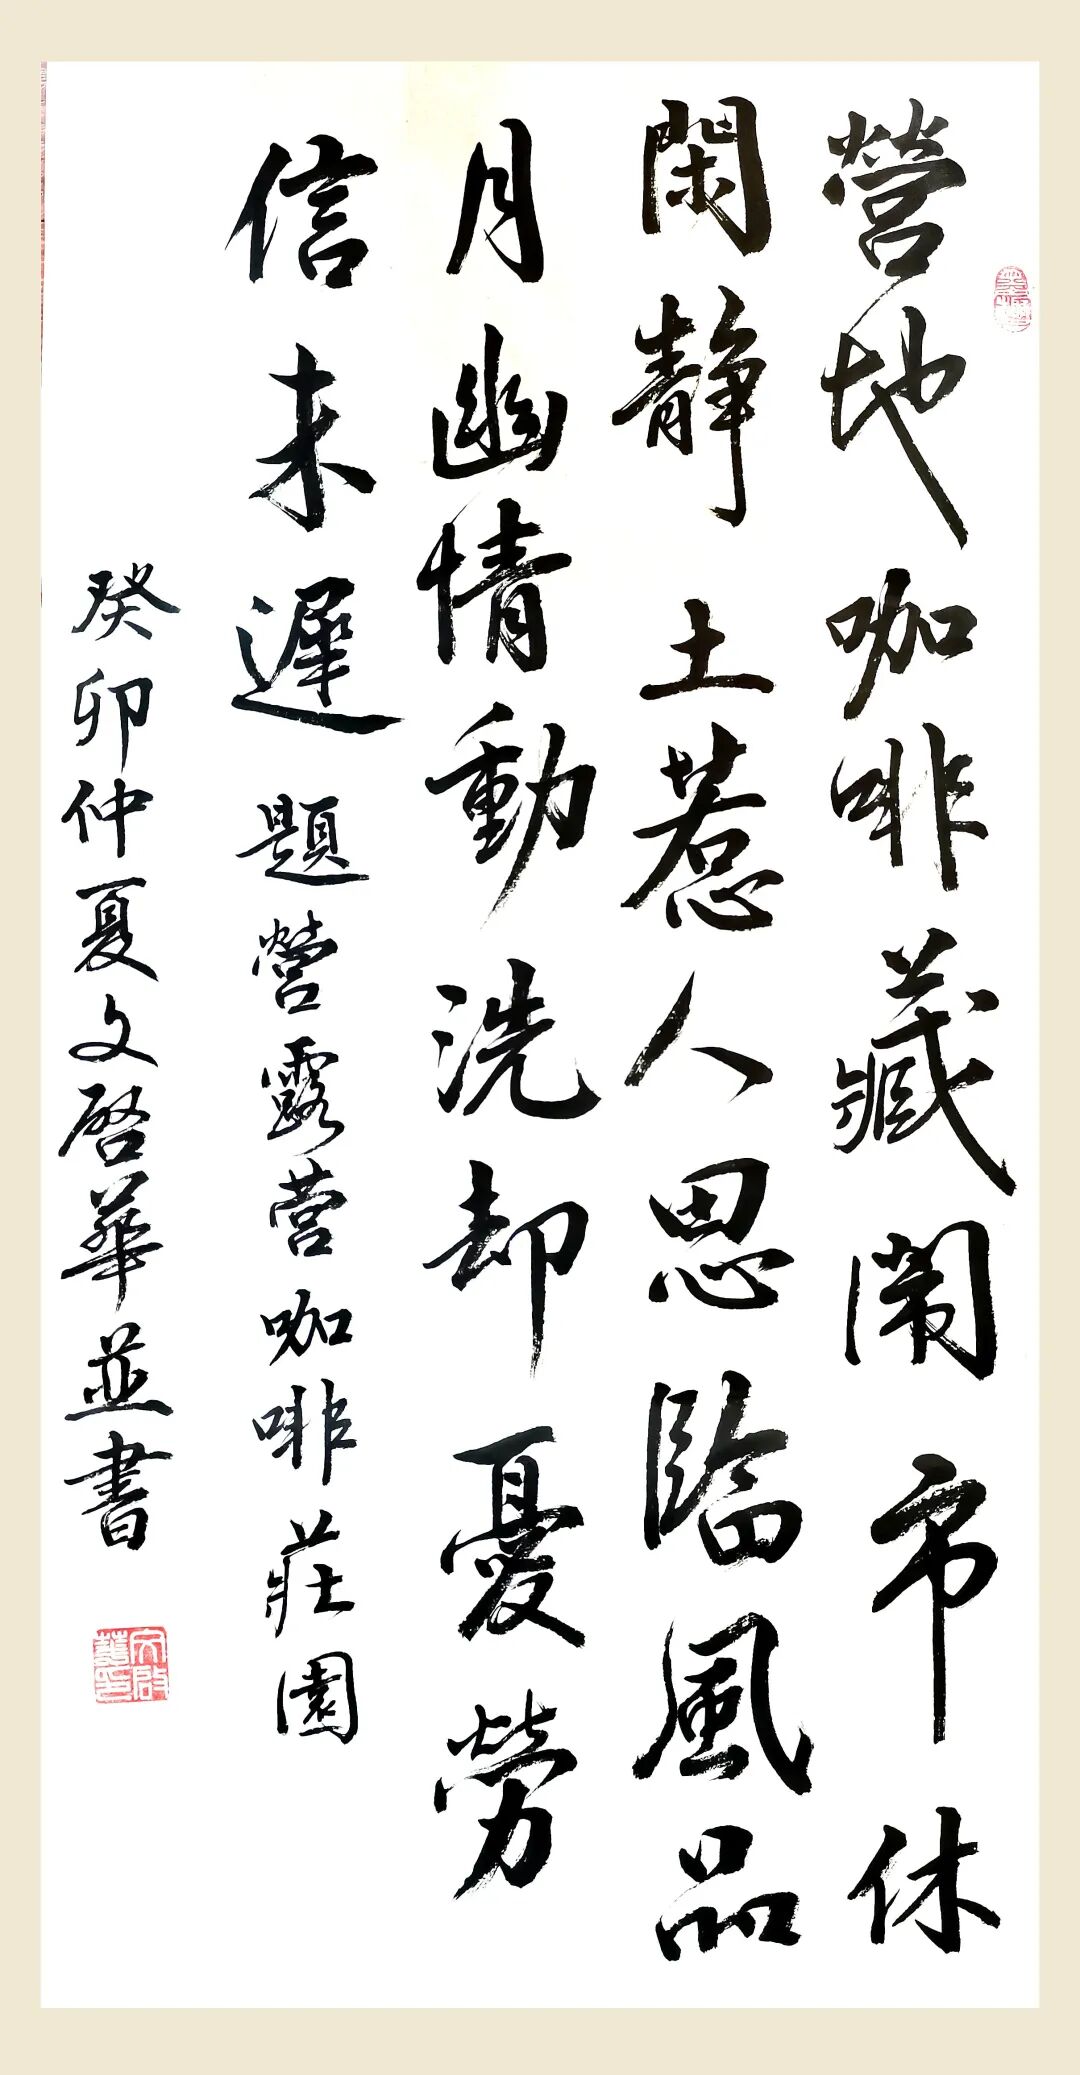 營地咖啡藏鬧市休
閑靜土惹人思臨風品
月幽情動洗却憂勞
信未遲
題營露营咖啡莊園
癸卯仲夏文啓華並書
文啟華印